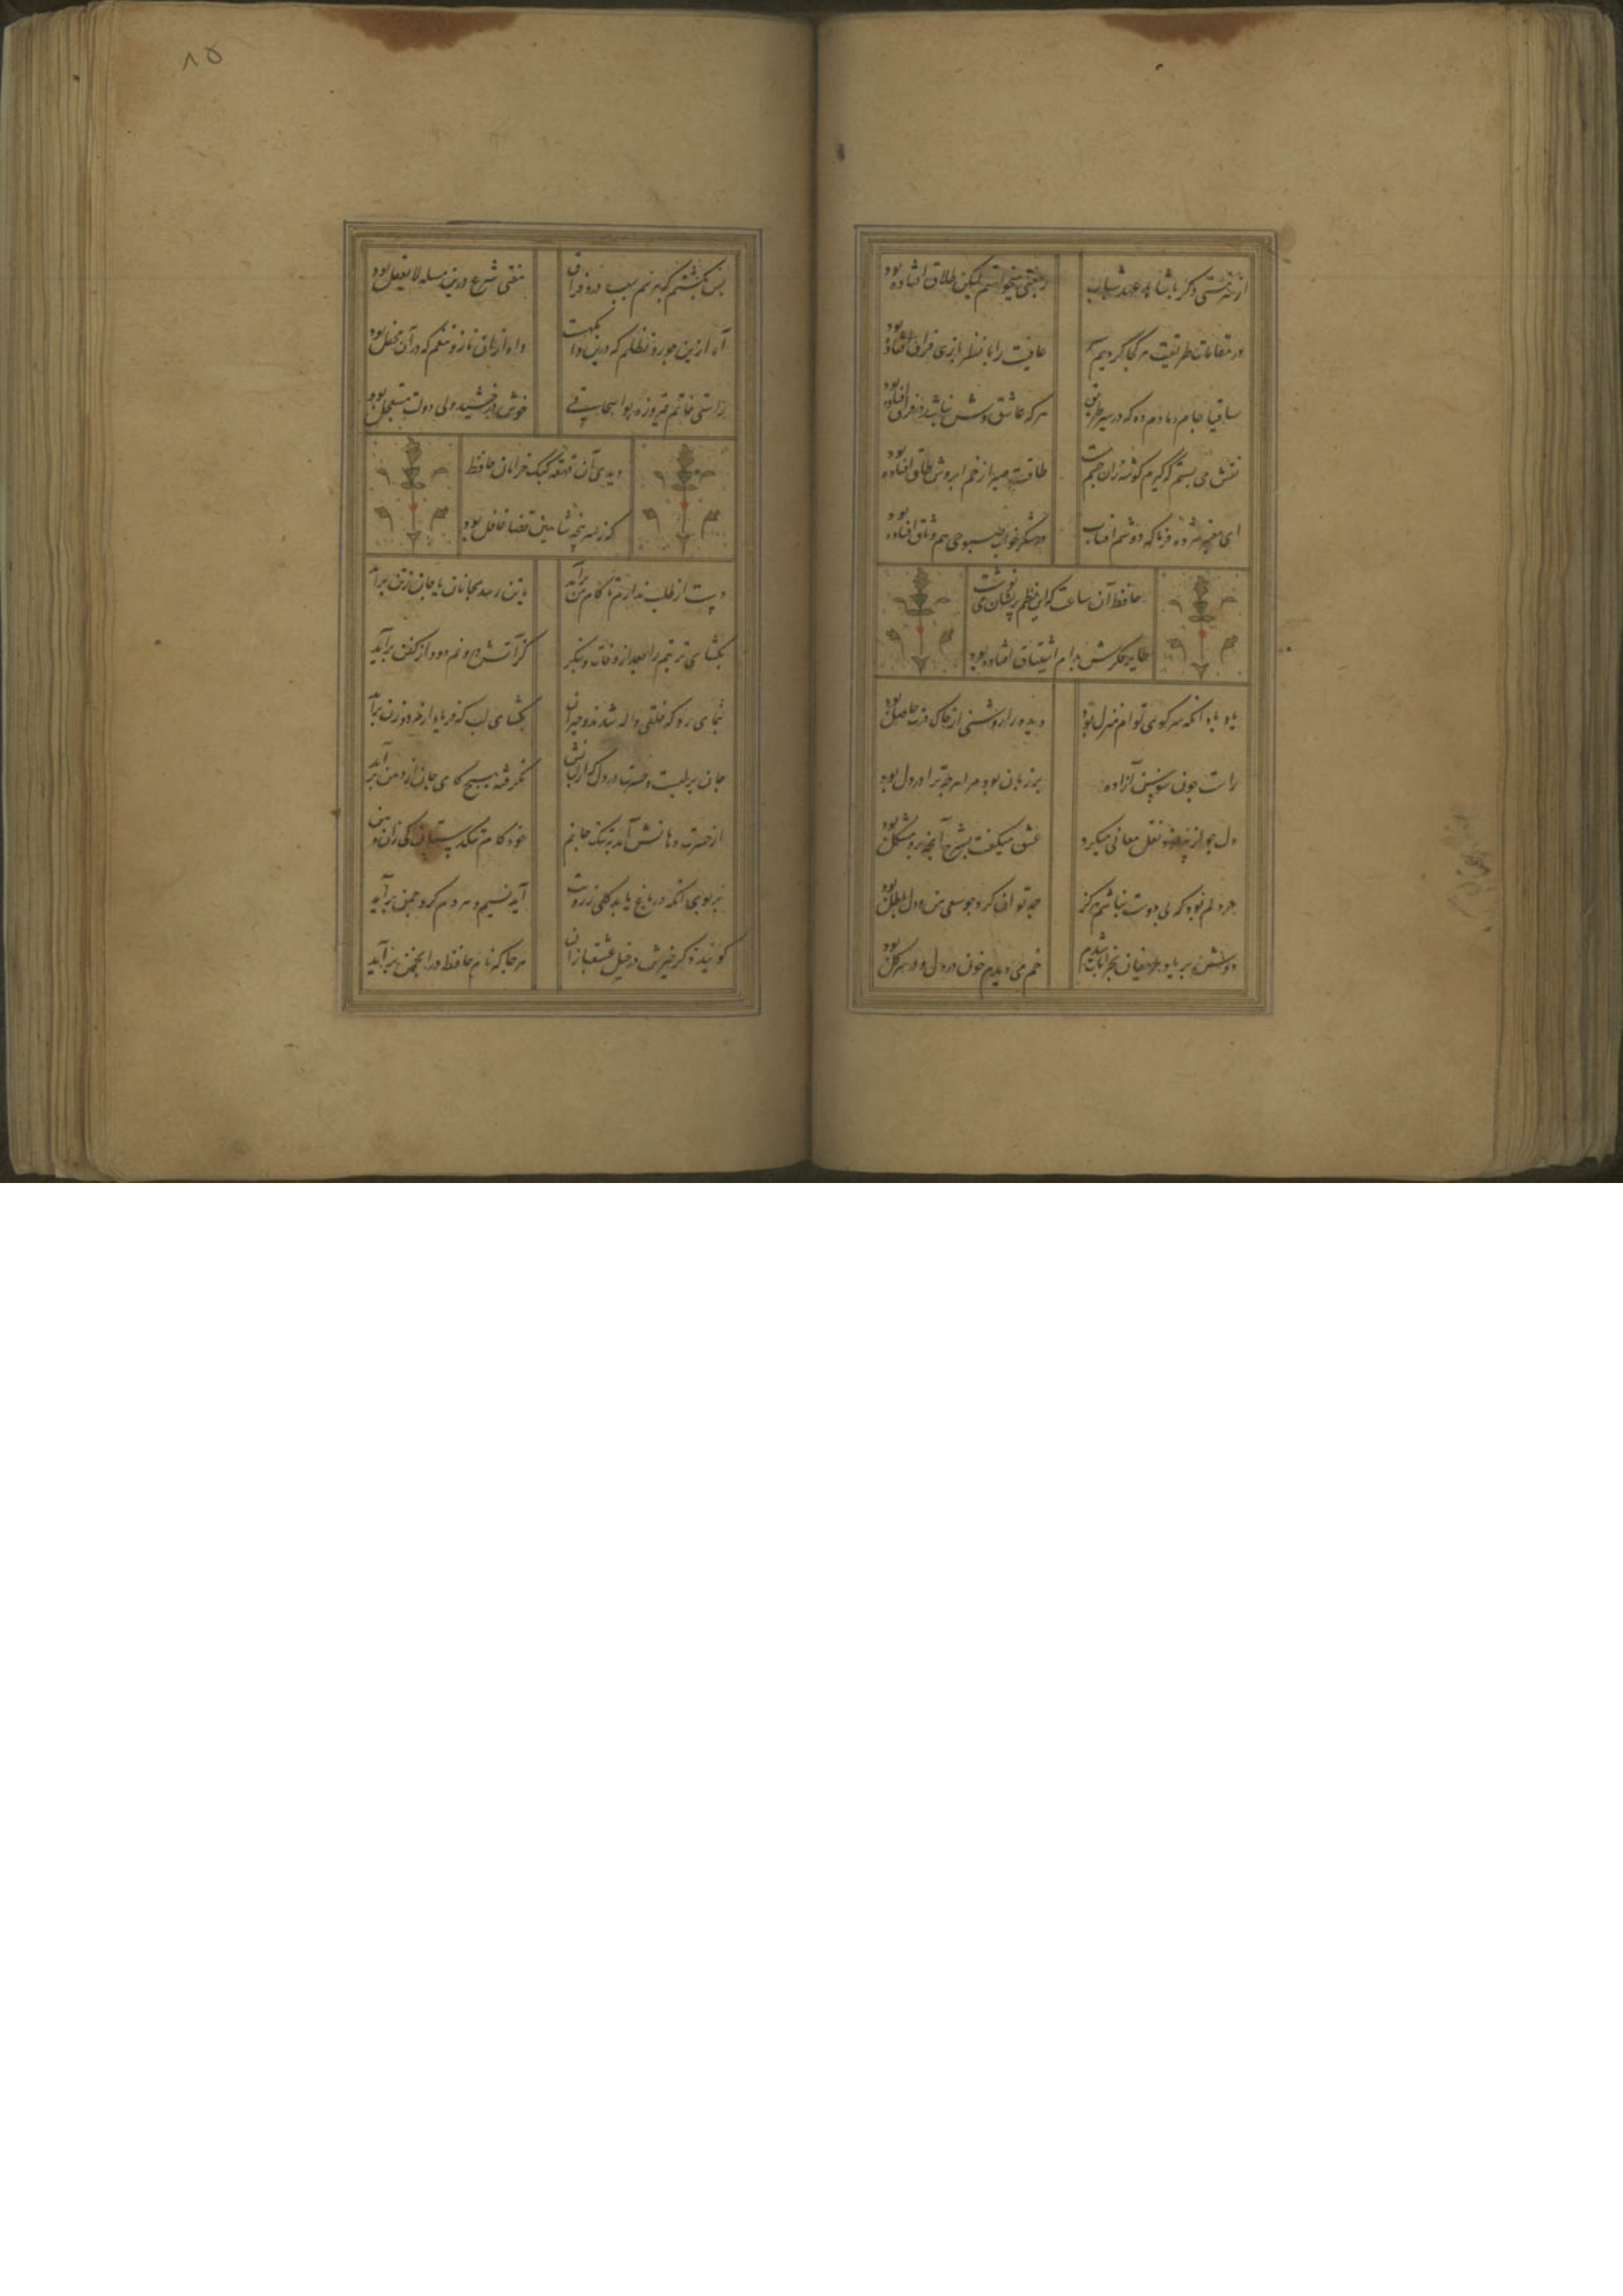 از سر مستی دگر با شاهد عهد شباب
رجعتی میخواستم لیکن طلاق افتاده بود
در مقامات طریقت هر کجا کردیم سیر
عافیت را با نظر بازی فراق افتاده بود
ساقیا جام دمادم ده که در سیر طریق
هر که عاشق وش نباشد در نفاق افتاده بود
نقش می بستم که گیرم گوشه زان چشم مست
طاقت صبر از خم ابروش طاق افتاده بود
ای معبر مژده فرما که دوشم آفتاب
در شکر خواب صبوحی هم وثاق افتاده بود
حافظ آن ساعت که این نظم پریشان می نوشت
طایر فکرش بدام اشتیاق افتاده بود
یاد باد آنکه سر کوی توام منزل بود
دیده را روشنی از خاک درت حاصل بود
راست چون سوسن آزاده
بر زبان بود مرا هر چه ترا در دل بود
دل چو از پیر خرد نقل معانی میکرد
عشق میگفت بشرح آنچه برو مشکل بود
در دلم بود که بی دوست نباشم هرگز
چه توان کرد چو سعی من و دل باطل بود
دوش بر یاد حریفان بخرابات شدم
خم می دیدم خون در دل و در سر گل بود
۸۵
بس بگشتم که بپرسم سبب درد فراق
مفتی شرع درین مسله لا یعقل بود
آه ازین جور و تظلم که درین دامگهست
واه ازان ناز و تنعم که در آن محفل بود
راستی خاتم فیروزه بو اسحاقی
خوش درخشید ولی دولت مستعجل بود
دیدی آن قهقهه کبک خرامان حافظ
که ز سر پنجه شاهین قضا غافل بود
دست از طلب ندارم تا کام من برآید
یا تن رسد بجانان یا جان ز تن برآید
بگشای تربتم را بعد از وفات و بنگر
کز آتش درونم دود از کفن برآید
بنمای رو که خلقی واله شدند و حیران
بگشای لب که فریاد از مرد و زن برآید
جان بر لبست و حسرت در دل که از لبانش
نگرفته هیچ کامی جان از بدن برآید
از حسرت دهانش آمد بتنگ جانم
خود کام تنگدستان کی زان دهن برآید
بر بوی آنکه در باغ یابد گلی ز رویت
آید نسیم و هر دم گرد چمن برآید
گویند ذکر خیرش در خیل عشقبازان
هر جا که نام حافظ در انجمن برآید